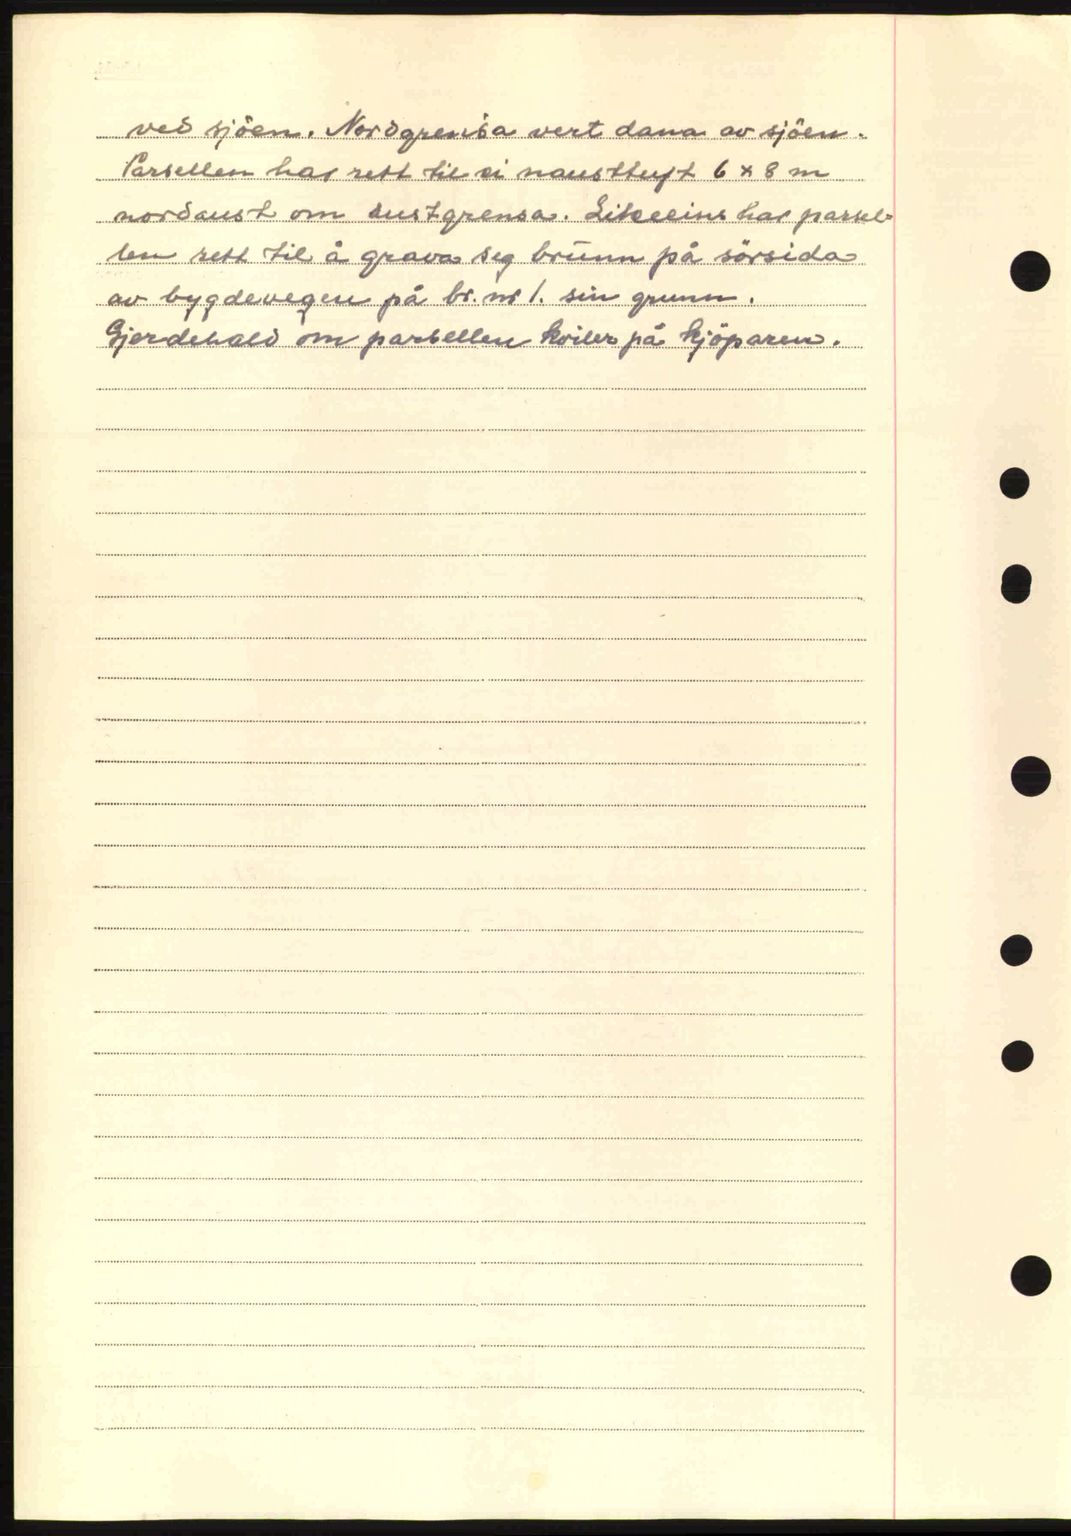 ved sjöen. Nordgrensa vert dana av sjöen.
Parsellen har rett til ei nausttuft 6 x 8 m
nordaust om austgrensa. Likeeins har parsel-
len rett til å grava seg brunn på sörsida
av bygdevegen på br. nr 1. sin grunn.
Gjerdehald om parsellen kviler på kjöparen.